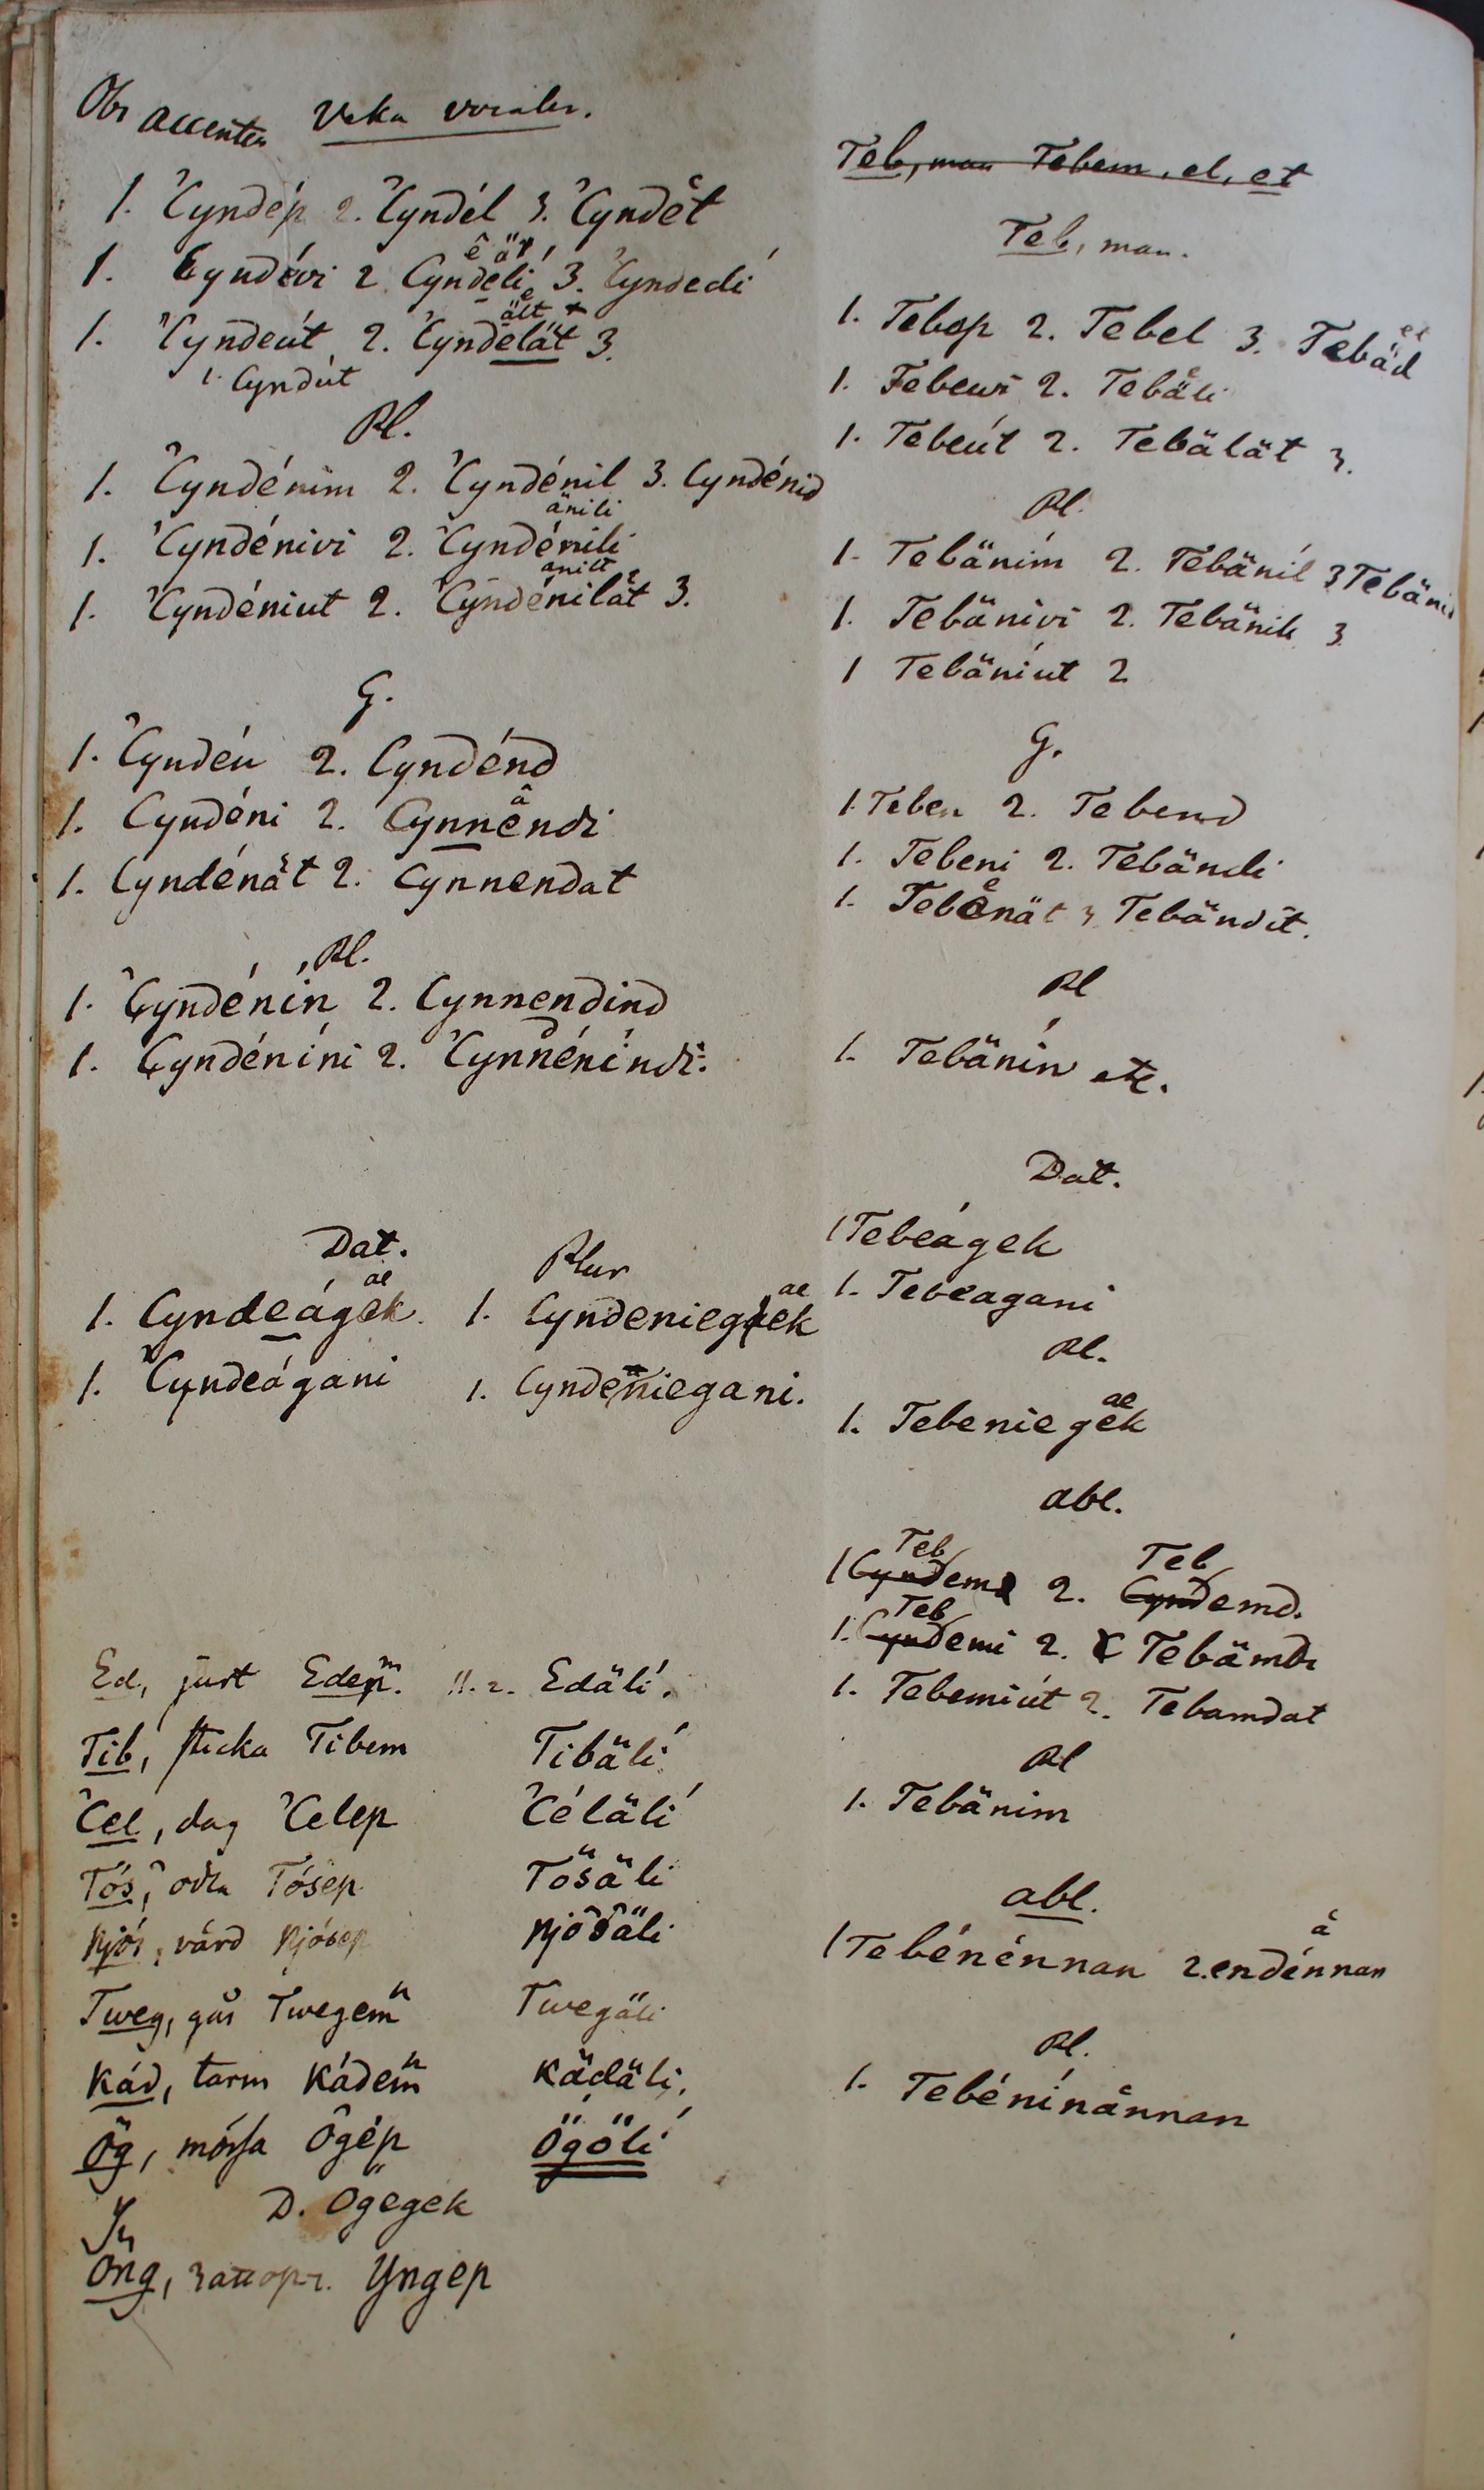 Obs accenten Veka vocaler.
1. Cyndép 2. Cyndél 3. Cyndet
1. Cyndévi 2. Cyndeli 3. Cyndedi
1. Cyndeút 2. Cyndelát 3.
1. Cyndút
Pl.
1. Cyndénim 2. Cyndénil 3. Cyndénid
änili
1. Cyndénivi 2. Cyndénili
anilt
1. Cyndéniut 2. Cyndénilät 3.
G.
1. Cyndén 2. Cyndénd
1. Cyndéni 2. Cynnendi
1. Cyndénät 2. Cynnendat
Pl.
1. Cyndénín 2. Cynnendind
1. Cyndéníni 2. Cynnéníndi.
Dat.
1. Cyndeágek
ae
1. Cyndeágani
Plur
1. Cyndeniegaek
ae
1. Cyndeniegani.
Ed, just Edep. II. 2. Edälí.
Tib, sticka Tibem Tibälí
Cel, dag Celep Céläli
Tós, odla Tósep Tösäli
Njós, vård Njósep Njösäli
Tweg, gås Twegem Twegäli
Kád, tarm Kádem Kädäli.
Ög, mössa Ögép Ögöli
D. Ögegek
Öng, Yngep
Teb, man Tebem, el, et
Teb, man.
1. Tebep 2. Tebel 3. Tebäd
et
1. Tebewi 2. Tebäli
1. Tebeút 2. Tebälät 3.
Pl.
1. Tebäním 2. Tebäníl 3 Tebänid
1. Tebänivi 2. Tebänili 3.
1 Tebäníut 2
G.
1. Teben 2. Tebend
1. Tebeni 2. Tebändi
1. Tebenät 2. Tebändit.
Pl
1. Tebänín etc.
Dat.
1 Tebeágek
1. Tebeagani
Pl.
1. Tebeniegek
ae
abl.
Teb Teb
1 Cyndem 2. Cyndemd.
Teb
1. Cyndemi 2. Tebämdi
1. Tebemiút 2. Tebamdat
Pl
1. Tebänim
abl.
1 Tebénénnan 2. endénnan
Pl.
1. Tebéninännan